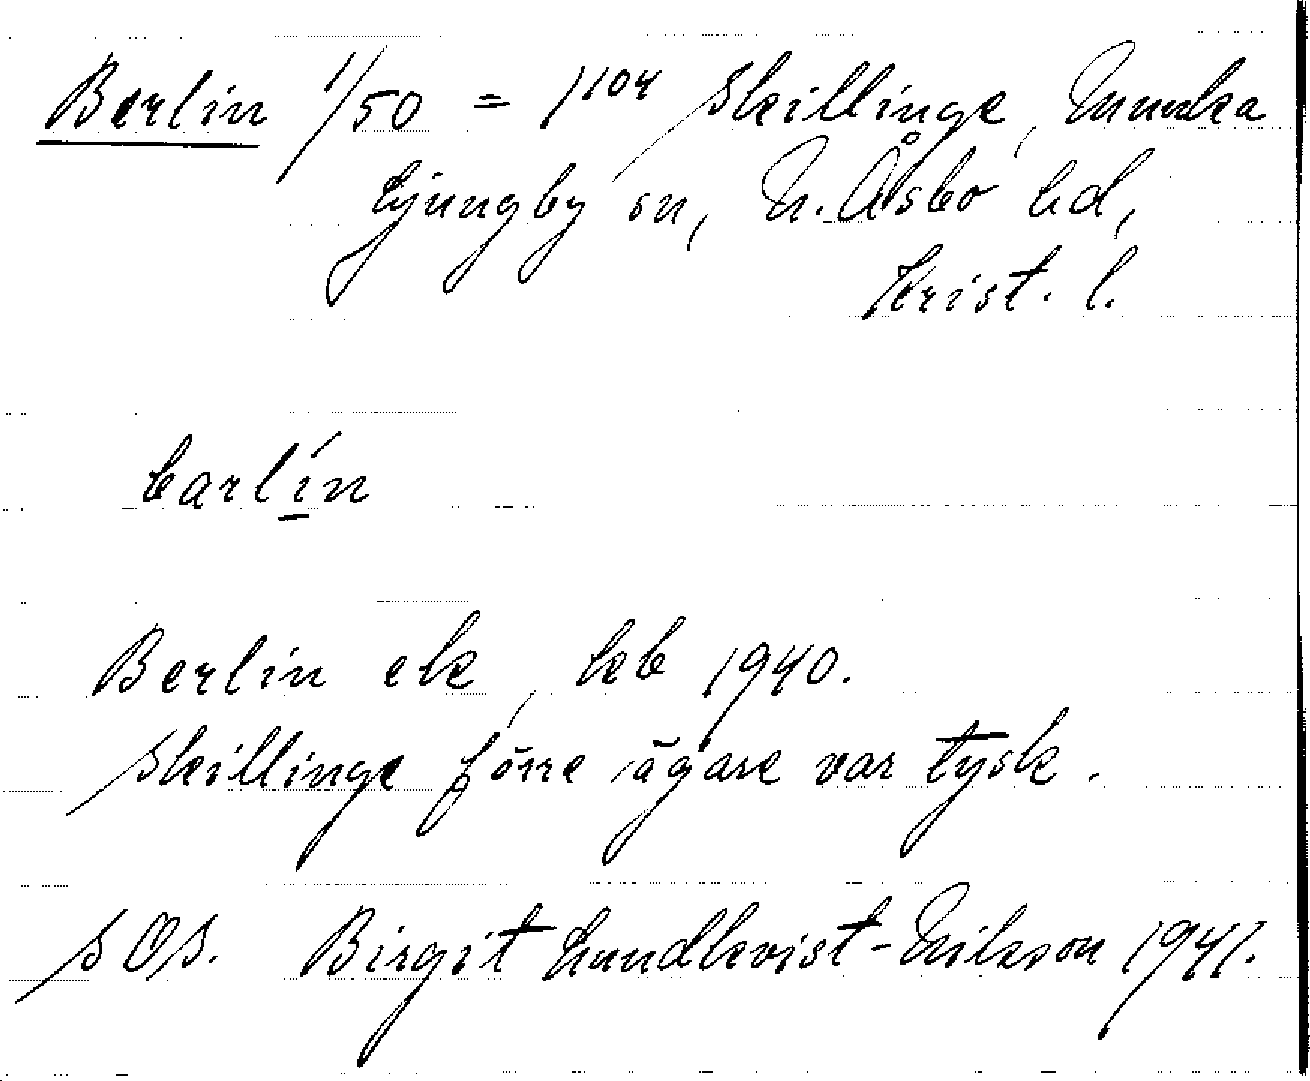 Berlin 1/50 = 1¹⁰⁴ Skillinge, Munka
Ljungby sn, N. Åsbo hd,
Krist. l.
barlín
Berlin ek, kb 1940.
Skillinge förre ägare var tysk.
SOS. Birgit Lundkvist-Nilsson 1941.